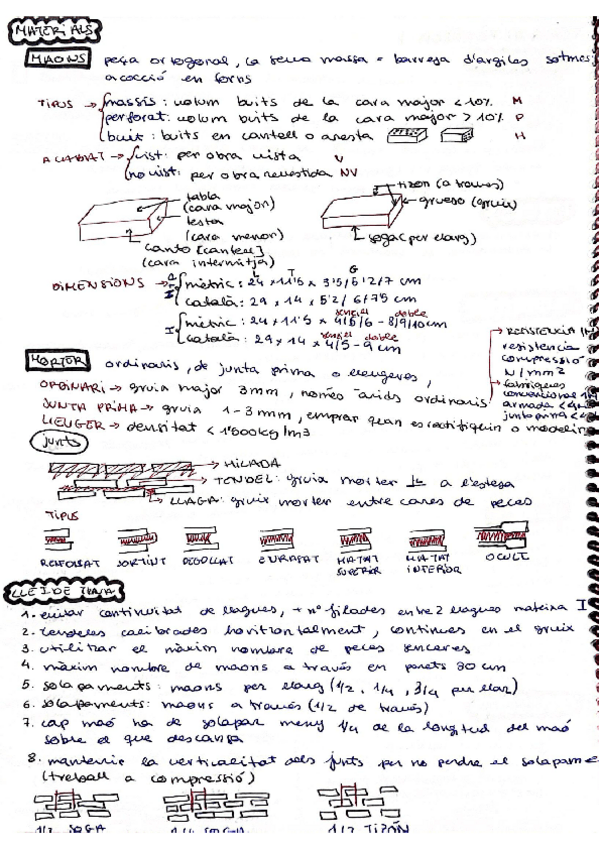 MATERIALS
MAONS peça ortogonal, la seva massa = barreja d'argiles
a cocció en forns
TIPUS → massís: volum buits de la cara major < 10% M
perforat: volum buits de la cara major > 10% P
buit: buits en cantell o aresta H
ACABAT → vist: per obra vista V
no vist: per obra revestida NV
tabla
(cara major)
testa
(cara menor)
canto [cantell]
(cara intermitja)
tizon (a través)
grueso (gruix)
soga (per llarg)
L T G
DIMENSIONS → mètric: 24 x 11'5 x 3'5/5'2/7 cm
català: 29 x 14 x 5'2/ 6/7'5 cm
senzill doble
I mètric: 24 x 11'5 x 4/5/6 - 8/9/10cm
senzill doble
català: 29 x 14 x 4/5 - 9 cm
MORTER ordinaris, de junta prima o lleugeres,
ORDINARI → gruix major 3mm, només àrids ordinaris
JUNTA PRIMA → gruix 1-3mm, emprar quan es rectifiquin o
LLEUGER → densitat <
→ RESISTÈNCIA
resistència
compressió
N/mm²
→ fàbriques
convencional
armada
junta prima
junts
→ FILADA
→ TENDEL: gruix morter a l'estesa
→ LLAGA: gruix morter entre cares de peces
TIPUS
REFOSAT SORTINT DEGOLLAT ENRASAT MATAT
SUPERIOR MATAT
INFERIOR OCULT
LLEI DE TRAVA
1. evitar continuitat de llagues, + nº filades entre 2 llagues mateixa
2. tendeles calibrades horitzontalment, continues en el gruix
3. utilitzar el màxim nombre de peces senceres
4. màxim nombre de maons a través en parets 30 cm
5. solapaments: maons per llarg (1/2, 1/4, 3/4 per llarg)
6. solapaments: maons a través (1/2 de través)
7. cap maó ha de solapar menys 1/4 de la longitud del maó
sobre el que descansa
8. mantenir la verticalitat dels junts per no perdre el
(treball a compressió)
1/2 SOGA 1/4 SOGA 1/2 TIZÓN